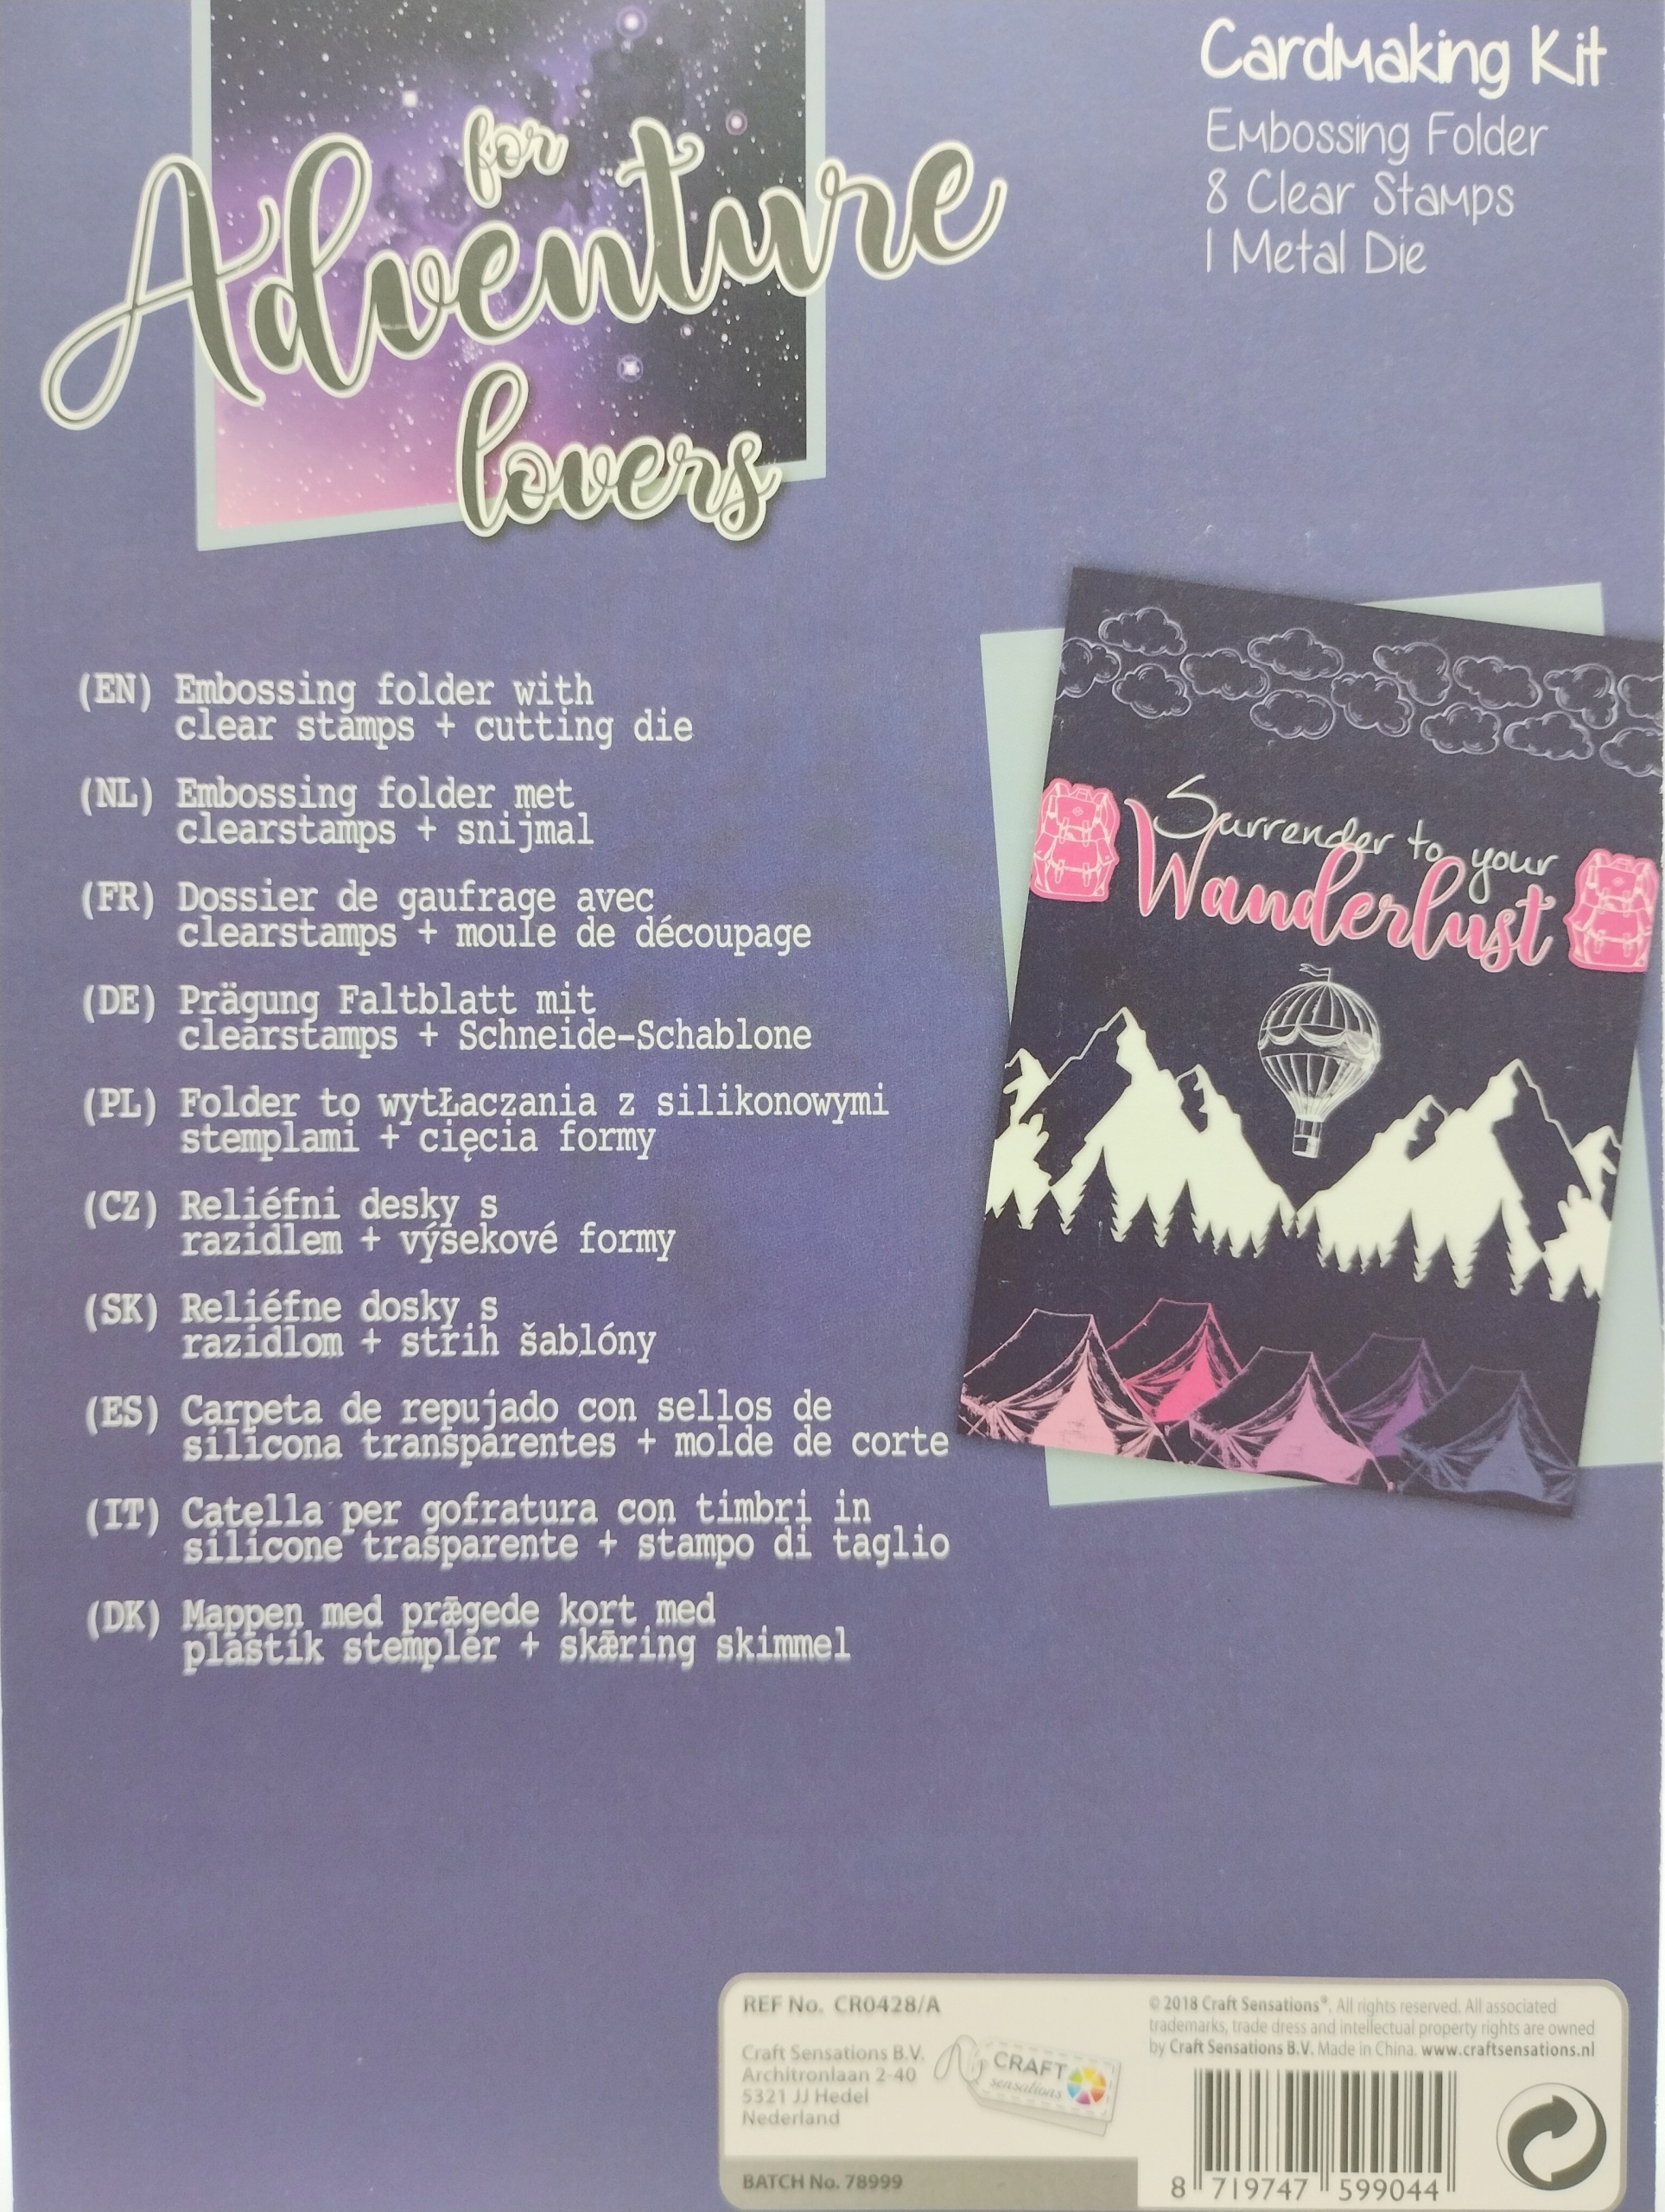 for
Adventure
lovers
Cardmaking Kit
Embossing Folder
8 Clear Stamps
1 Metal Die
(EN) Embossing folder with
clear stamps + cutting die
(NL) Embossing folder met
clearstamps + snijmal
(FR) Dossier de gaufrage avec
clearstamps + moule de découpage
(DE) Prägung Faltblatt mit
clearstamps + Schneide-Schablone
(PL) Folder to wytŁaczania z silikonowymi
stemplami + cięcia formy
(CZ) Reliéfni desky s
razidlem + výsekové formy
(SK) Reliéfne dosky s
razidlom + strih šablóny
(ES) Carpeta de repujado con sellos de
silicona transparentes + molde de corte
(IT) Catella per gofratura con timbri in
silicone trasparente + stampo di taglio
(DK) Mappen med prægede kort med
plastik stempler + skæring skimmel
Surrender to your
Wanderlust
REF No. CR0428/A
Craft Sensations B.V.
Architronlaan 2-40
5321 JJ Hedel
Nederland
CRAFT
sensations
BATCH No. 78999
© 2018 Craft Sensations®. All rights reserved. All associated
trademarks, trade dress and intellectual property rights are owned
by Craft Sensations B.V. Made in China. www.craftsensations.nl
8 719747 599044